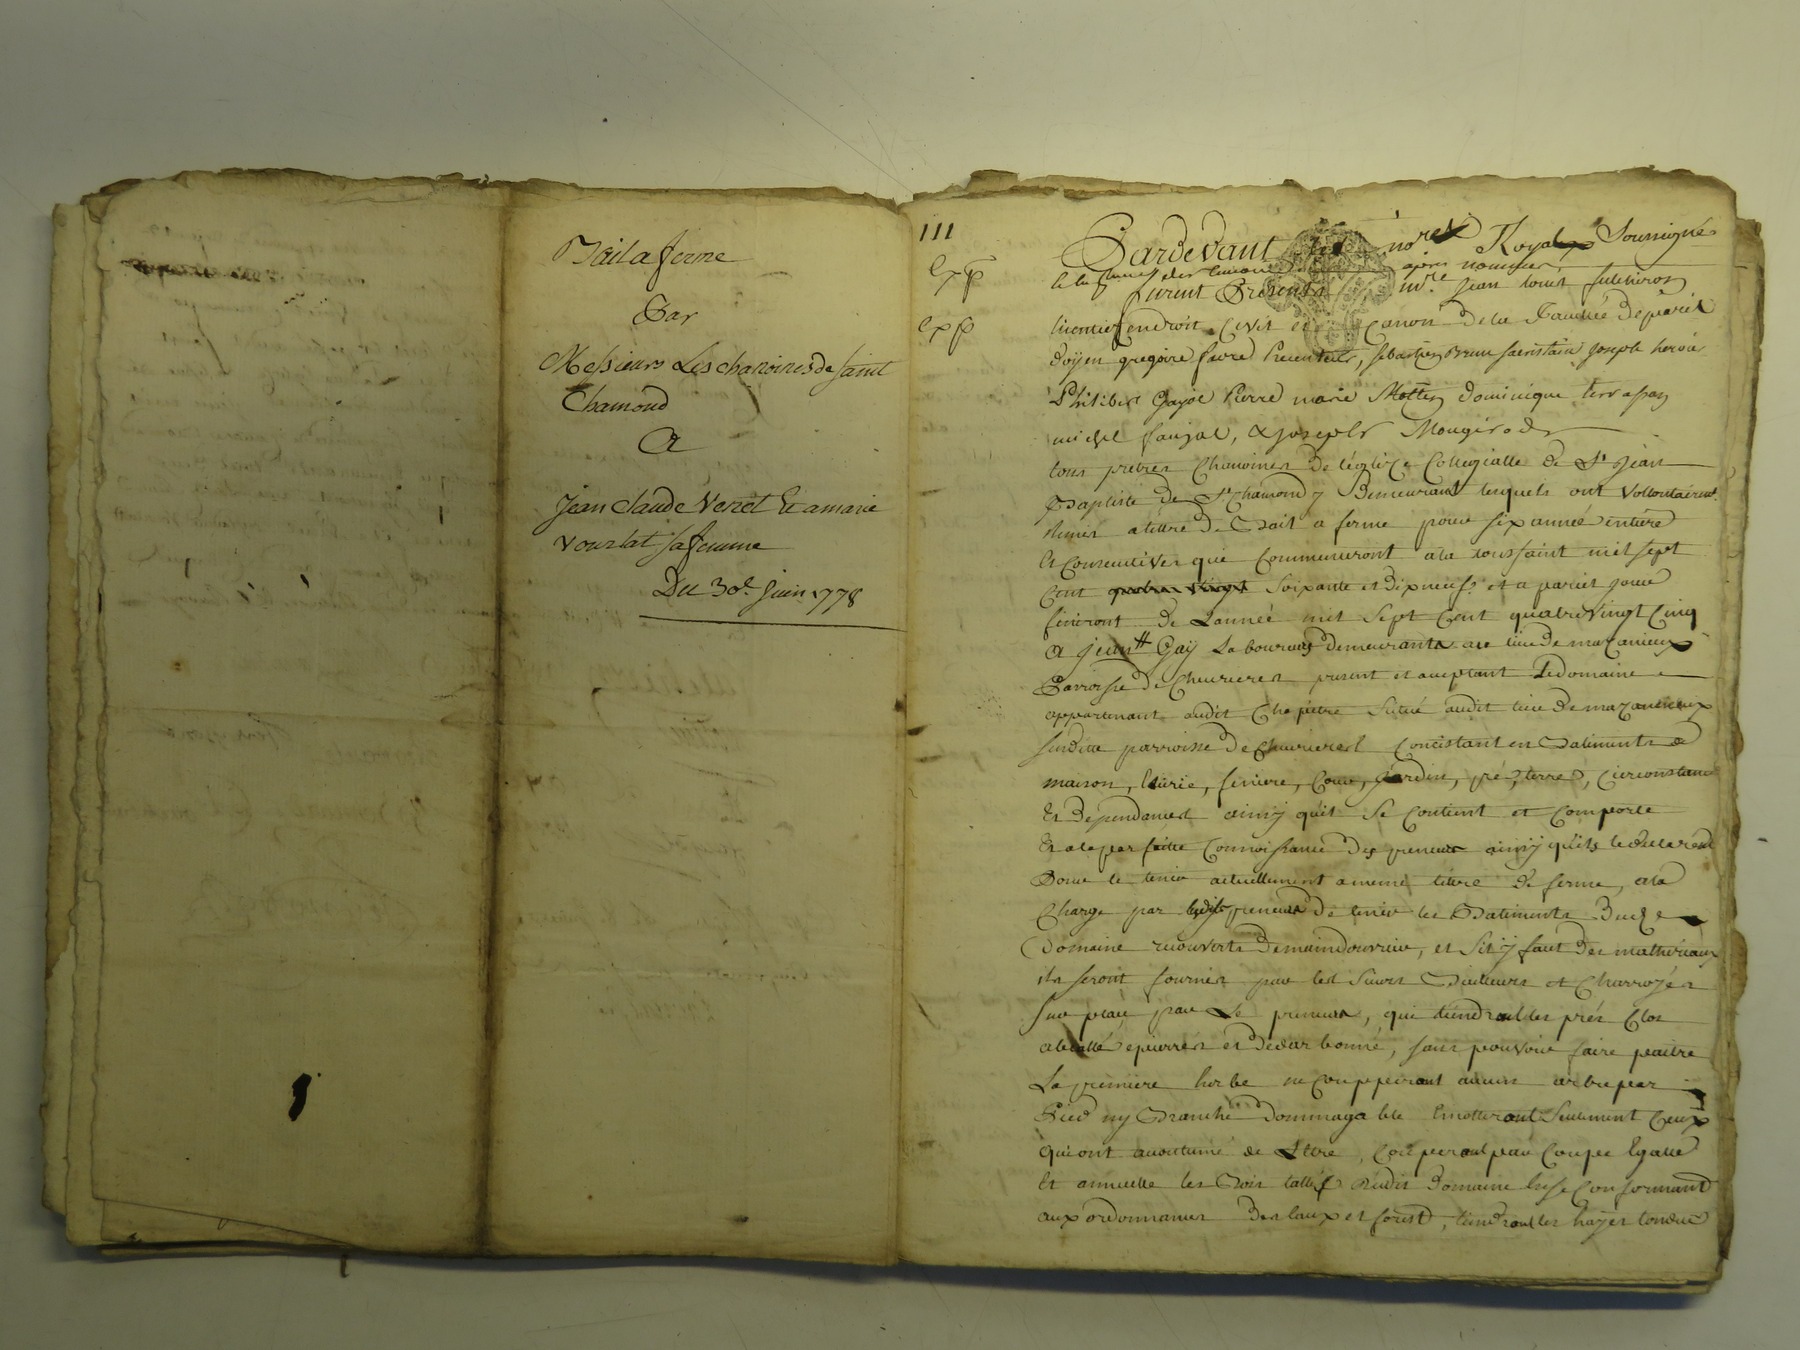 Bail a ferme
Par
Messieurs Les chanoines de saint
Chamond
A
Jean Claude Verzet Et a marie
vourlat sa femme
Du 30e. juin 1778
111
exp
exp
Pardevant nores Royal Soussigné
furent Presents mre Jean Louis
licentié en droit Civil et Canon de la Faculté de paris
doÿen gregoire favre Precenteur, sebastien Brun sacristain Joseph
Philibert Gayot Pierre marie Mottet Dominique terrapon
michel faujat, & Joseph Mougirod
tous pretres Chanoines de léglize Collegialle de St Jean
Baptiste de St Chamond y Demeurant lesquels ont vollontairemt
a tittre de Bail a ferme pour six année entière
Et Consecutives qui Commenceront a la toussaint mil sept
Cent soixante et dix neuf et a pareil jour
finiront de Lannée mil sept Cent quatre vingt Cinq
A Jean Gaÿ Laboureur demeurant au lieu de mazanieux
Parroisse de Chevrieres present et acceptant Le domaine
appartenant audit Chapitre situé audit lieu de mazanieux
susditte parroisse de Chevrieres Concistant en Batiments de
maison, Ecurie, feniere, Cour, Jardin, pré, terres, Circonstance
Et Dependances ainsÿ qu'il se Contient et Comporte
Et a la parfaitte Connoissance des preneur ainsÿ qu'ils le déclarent
Pour le tenir actuellement a meme tittre de ferme, a la
Charge par lesdits preneur de tenir les Batiments Dudt
Domaine recouverts demaindouvrier, et sil ÿ faut des matheriaux
ils seront fournis par les sieurs Bailleurs et Charroÿés
sur place par Le preneur, qui tiendront les prés Clos
epierrés et , sans pouvoir faire paitre
La premiere herbe ne Coupperont aucun arbre par
Pied ny Branche Dommageable Emotteront seulement Ceux
Qui ont accoutumé de Letre, Couperont par Coupe Egalle
Et annuelle les Bois dudit Domaine En se Conformant
aux ordonnances Des Eaux et forest, tiendront les hayes tondue